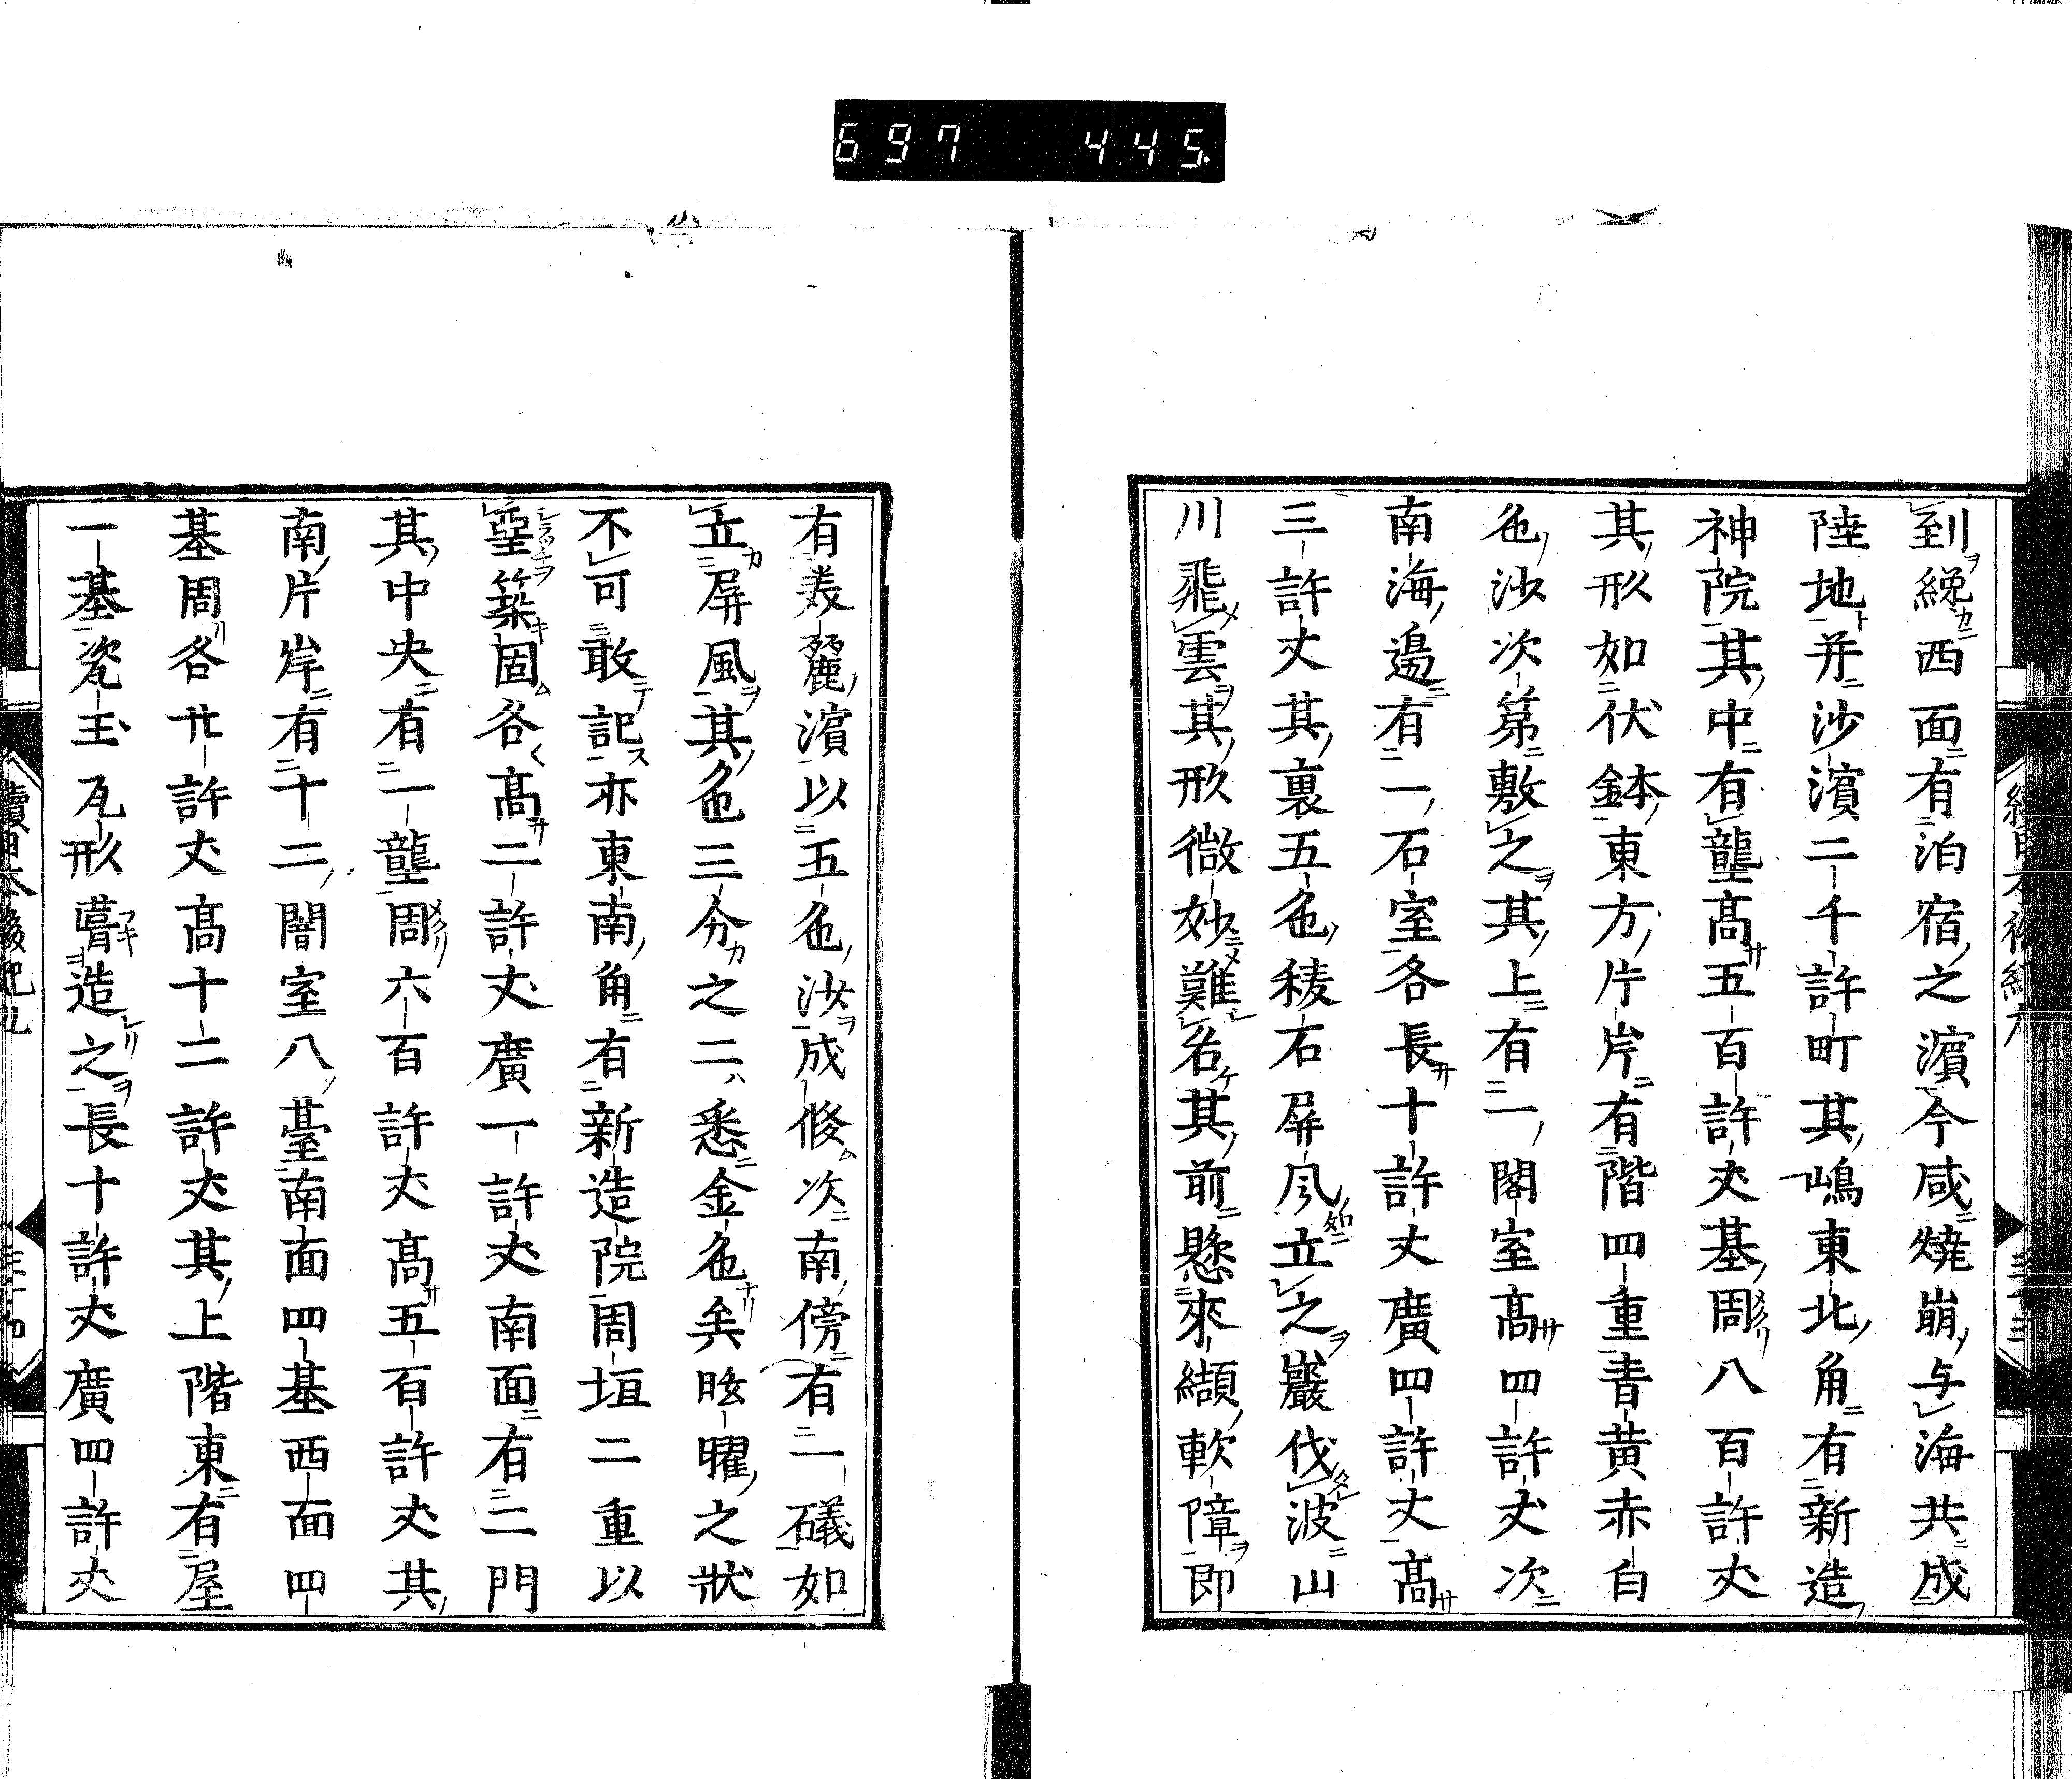 697 445.
到纔西面有泊宿之濵今咸燒崩与海共成
陸地并沙濵二千許町其嶋東北角有新造
神院其中有壟髙五百許𠀋基周八百許𠀋
其形如伏鉢東方片岸有階四重青黄赤白
色沙次第敷之其上有一閣室髙四許𠀋次
南海邉有一石室各長十許丈廣四許丈髙
三許丈其裏五色稜石屏風立之巖伐波山
川飛雲其形微妙難名其前懸來纈軟障即
有羙麗濵以五色沙成修次南傍有一礒如
立屏風其色三分之二悉金色矣眩曜之狀
不可敢記亦東南角有新造院周垣二重以
堊築固各髙二許丈廣一許𠀋南面有二門
其中央有一壟周六百許𠀋髙五百許𠀋其
南片岸有十二闇室八臺南面四基西面四
基周各廿許𠀋髙十二許𠀋其上階東有屋
一基瓷玉瓦形葺造之長十許𠀋廣四許𠀋
續日本後紀九